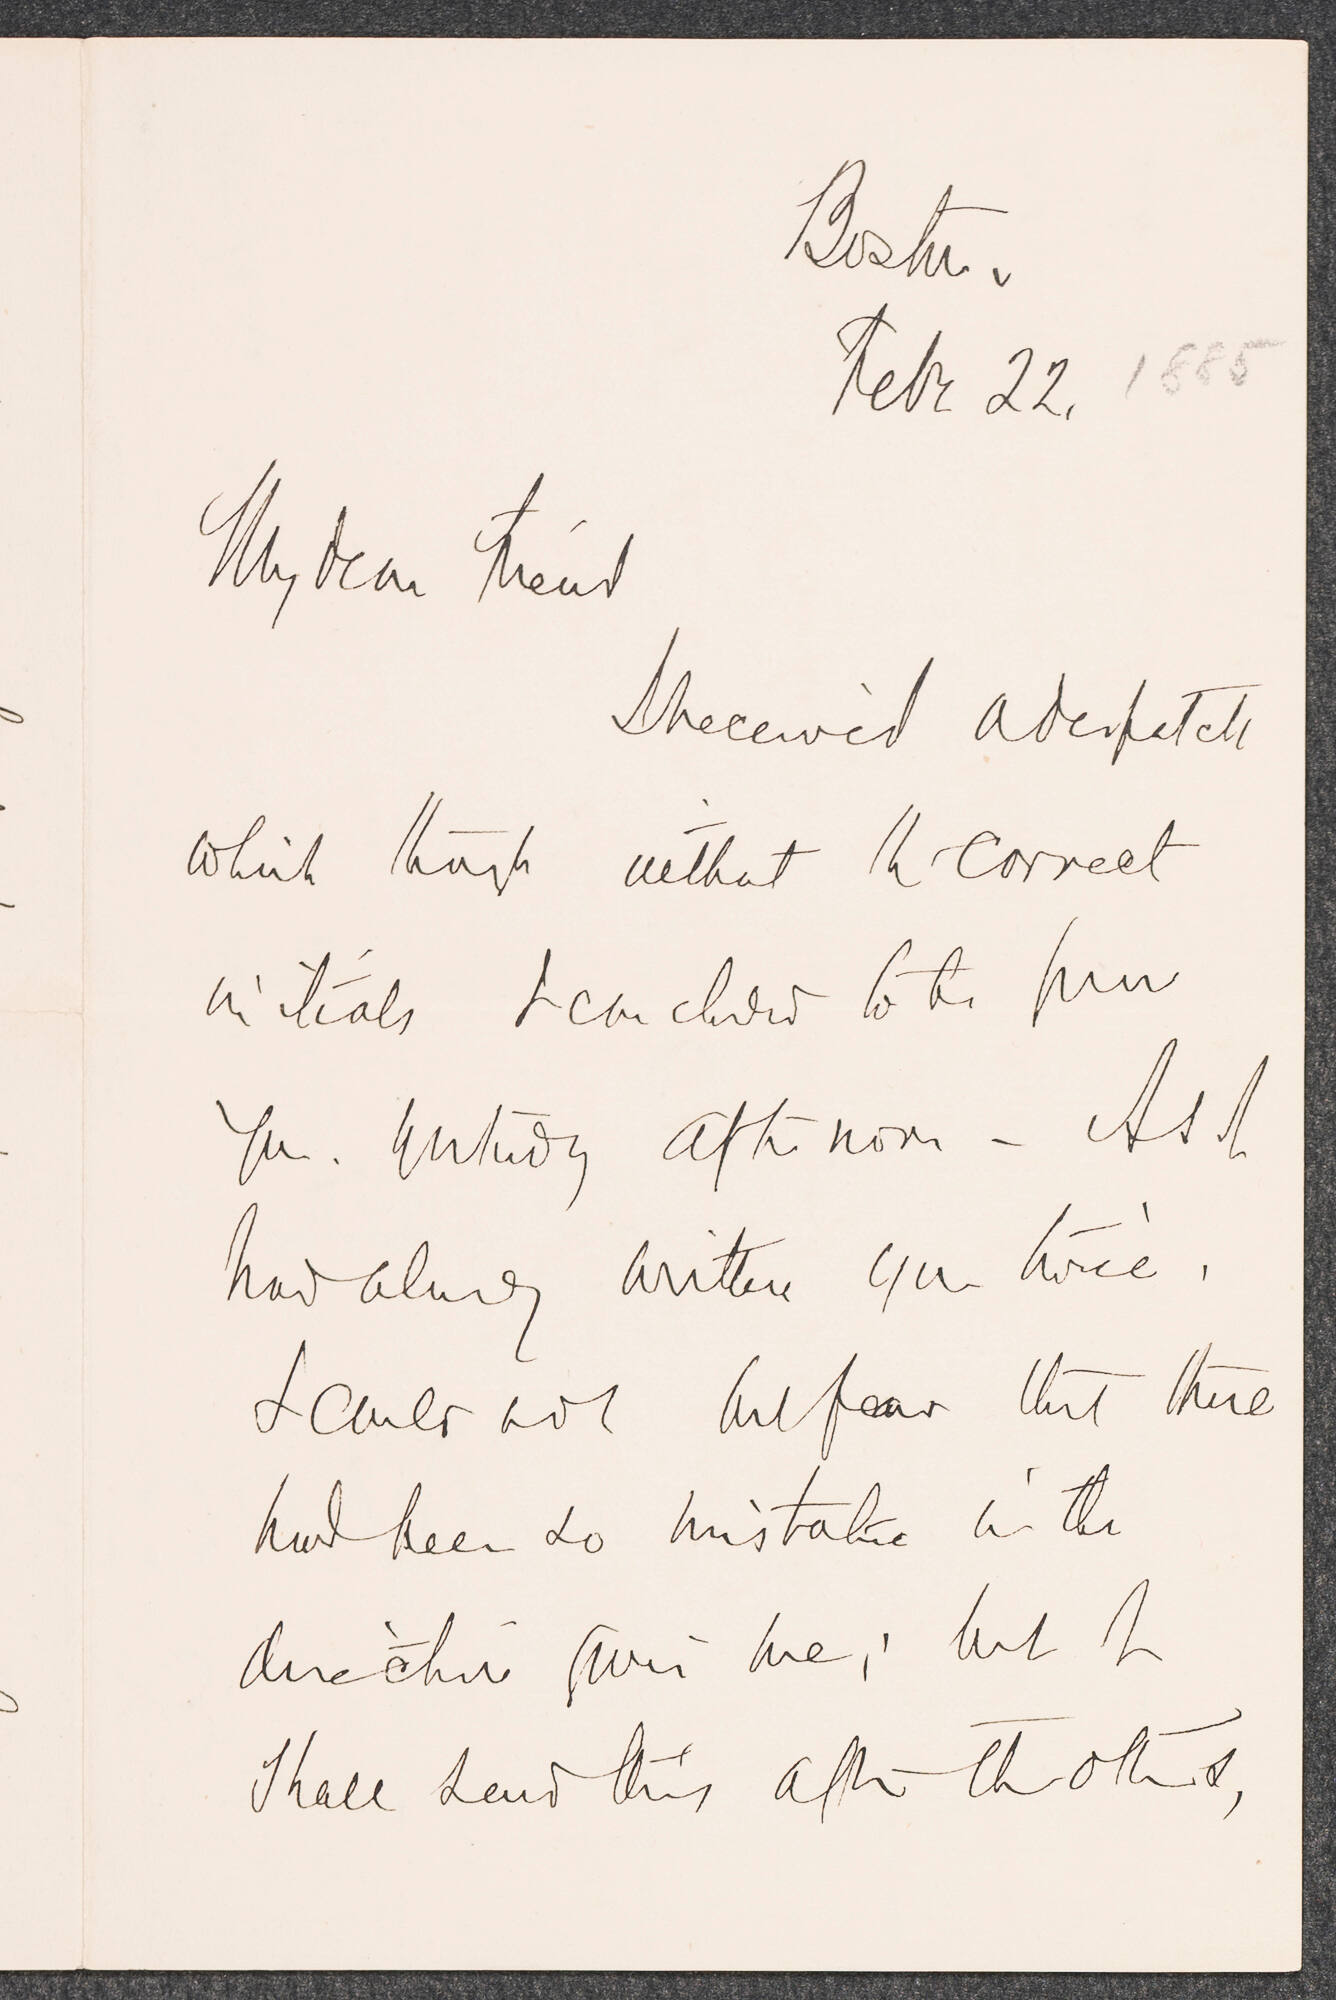 Boston.
Feb 22. 1885
My dear Friend
I received a despatch
which though without the correct
initials I concluded to be from
you. yesterday afternoon - As I
had already written you twice,
I could not but fear that there
had been so mistake in the
direction given me; but I
shall send this after the others,